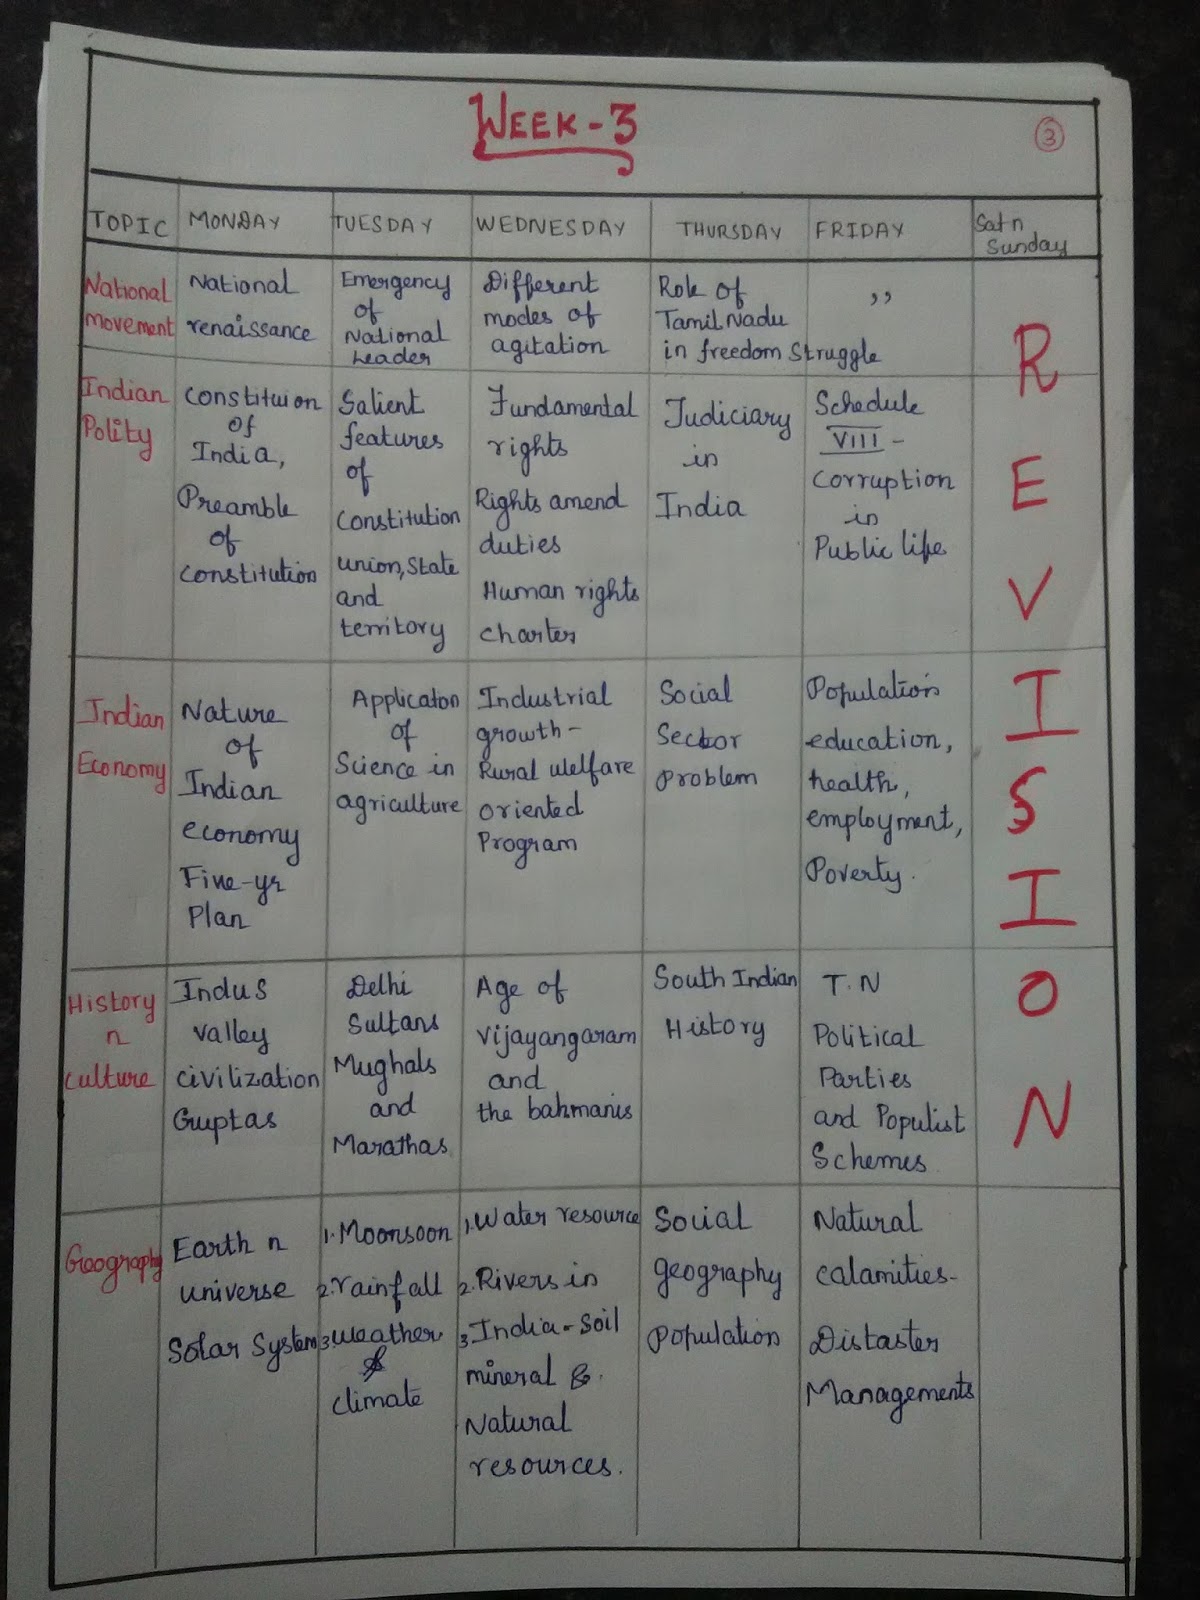 WEEK-3
3
TOPIC MONDAY TUESDAY WEDNESDAY THURSDAY FRIDAY Sat n Sunday
National
movement
National
renaissance
Emergency
of
National
Leader
Different
modes of
agitation
Role of
Tamil Nadu
in freedom Struggle
,,
Indian
Polity
Constituion
of
India,
Preamble
of
constitution
Salient
features
of
Constitution
union, State
and
territory
Fundamental
rights
Rights amend
duties
Human rights
charter
Judiciary
in
India
Schedule
VIII -
Corruption
in
Public life
Indian
Economy
Nature
of
Indian
economy
Five-yr
Plan
Applicaton
of
Science in
agriculture
Industrial
growth-
Rural welfare
oriented
Program
Social
Sector
problem
Population
education,
health,
employment,
Poverty.
History
n
culture
Indus
valley
civilization
Guptas
Delhi
Sultans
Mughals
and
Marathas
Age of
Vijayangaram
and
the bahmanis
South Indian
History
T.N
Political
Parties
and Populist
Schemes
Geography
Earth n
universe
Solar System
1. Moonsoon
2. rainfall
3. weather
&
climate
1. Water resource
2. Rivers in
3. India - Soil
mineral &
Natural
resources.
Social
geography
Population
Natural
calamities-
Distaster
Managements
R
E
V
I
S
I
O
N